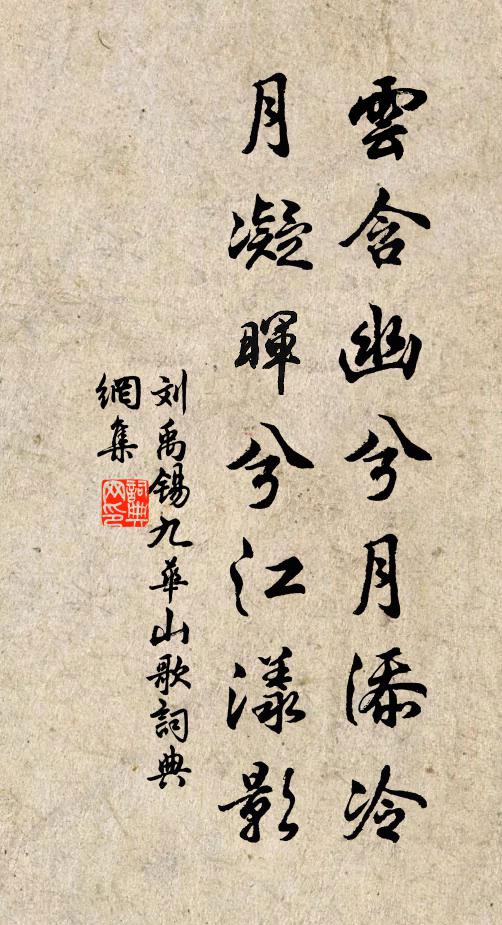 雲含幽兮月添冷
月凝暉兮江漾影
刘禹锡九华山歌詞典
網集
詞典
网印